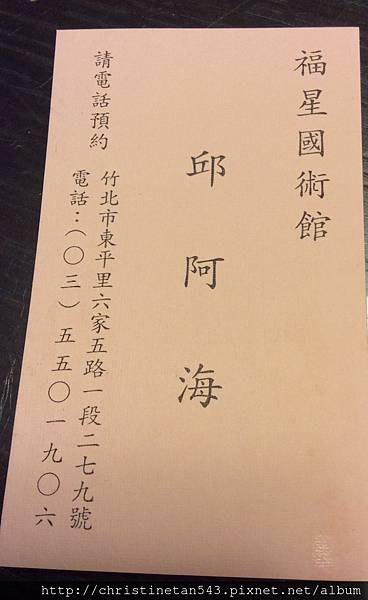 福星國術館
邱阿海
竹北市東平里六家五路一段二七九號
電話：（〇三）五五〇一九〇六
請電話預約
http://christinetan543.pixnet.net/album